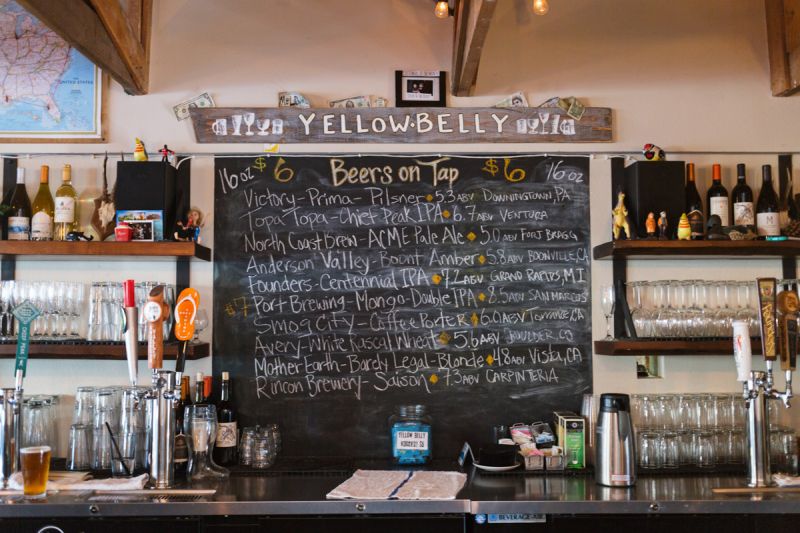 UNITED STATES
YELLOW•BELLY
16 oz $6 Beers on Tap $6 16 oz
Victory-Prima-Pilsner 5.3 ABV Downingtown, PA
Topa Topa-Chief Peak IPA 6.7 ABV Ventura
North Coast Brew-ACME Pale Ale 5.0 ABV Fort Bragg
Anderson Valley-Boont Amber 5.8 ABV Boonville, CA
Founders-Centennial IPA 7.2 ABV Grand Rapids, MI
$7 Port Brewing-Mongo-Double IPA 8.5 ABV San Marcos
Smog City-Coffee Porter 6.0 ABV Torrance, CA
Avery-White Rascal Wheat 5.6 ABV Boulder, CO
Mother Earth-Barely Legal-Blonde 4.8 ABV Vista, CA
Rincon Brewery-Saison 7.3 ABV Carpinteria
YELLOW BELLY
BEVERAGE-AIR